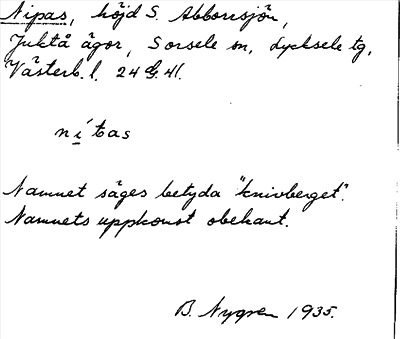 Nipas, höjd S. Abborrsjön,
Juktå ägor, Sorsele sn, Lycksele tg,
Västerb. l. 24 G. 41.
nítas
Namnet säges betyda "knivberget".
Namnets uppkomst obekant.
B. Nygren 1935.